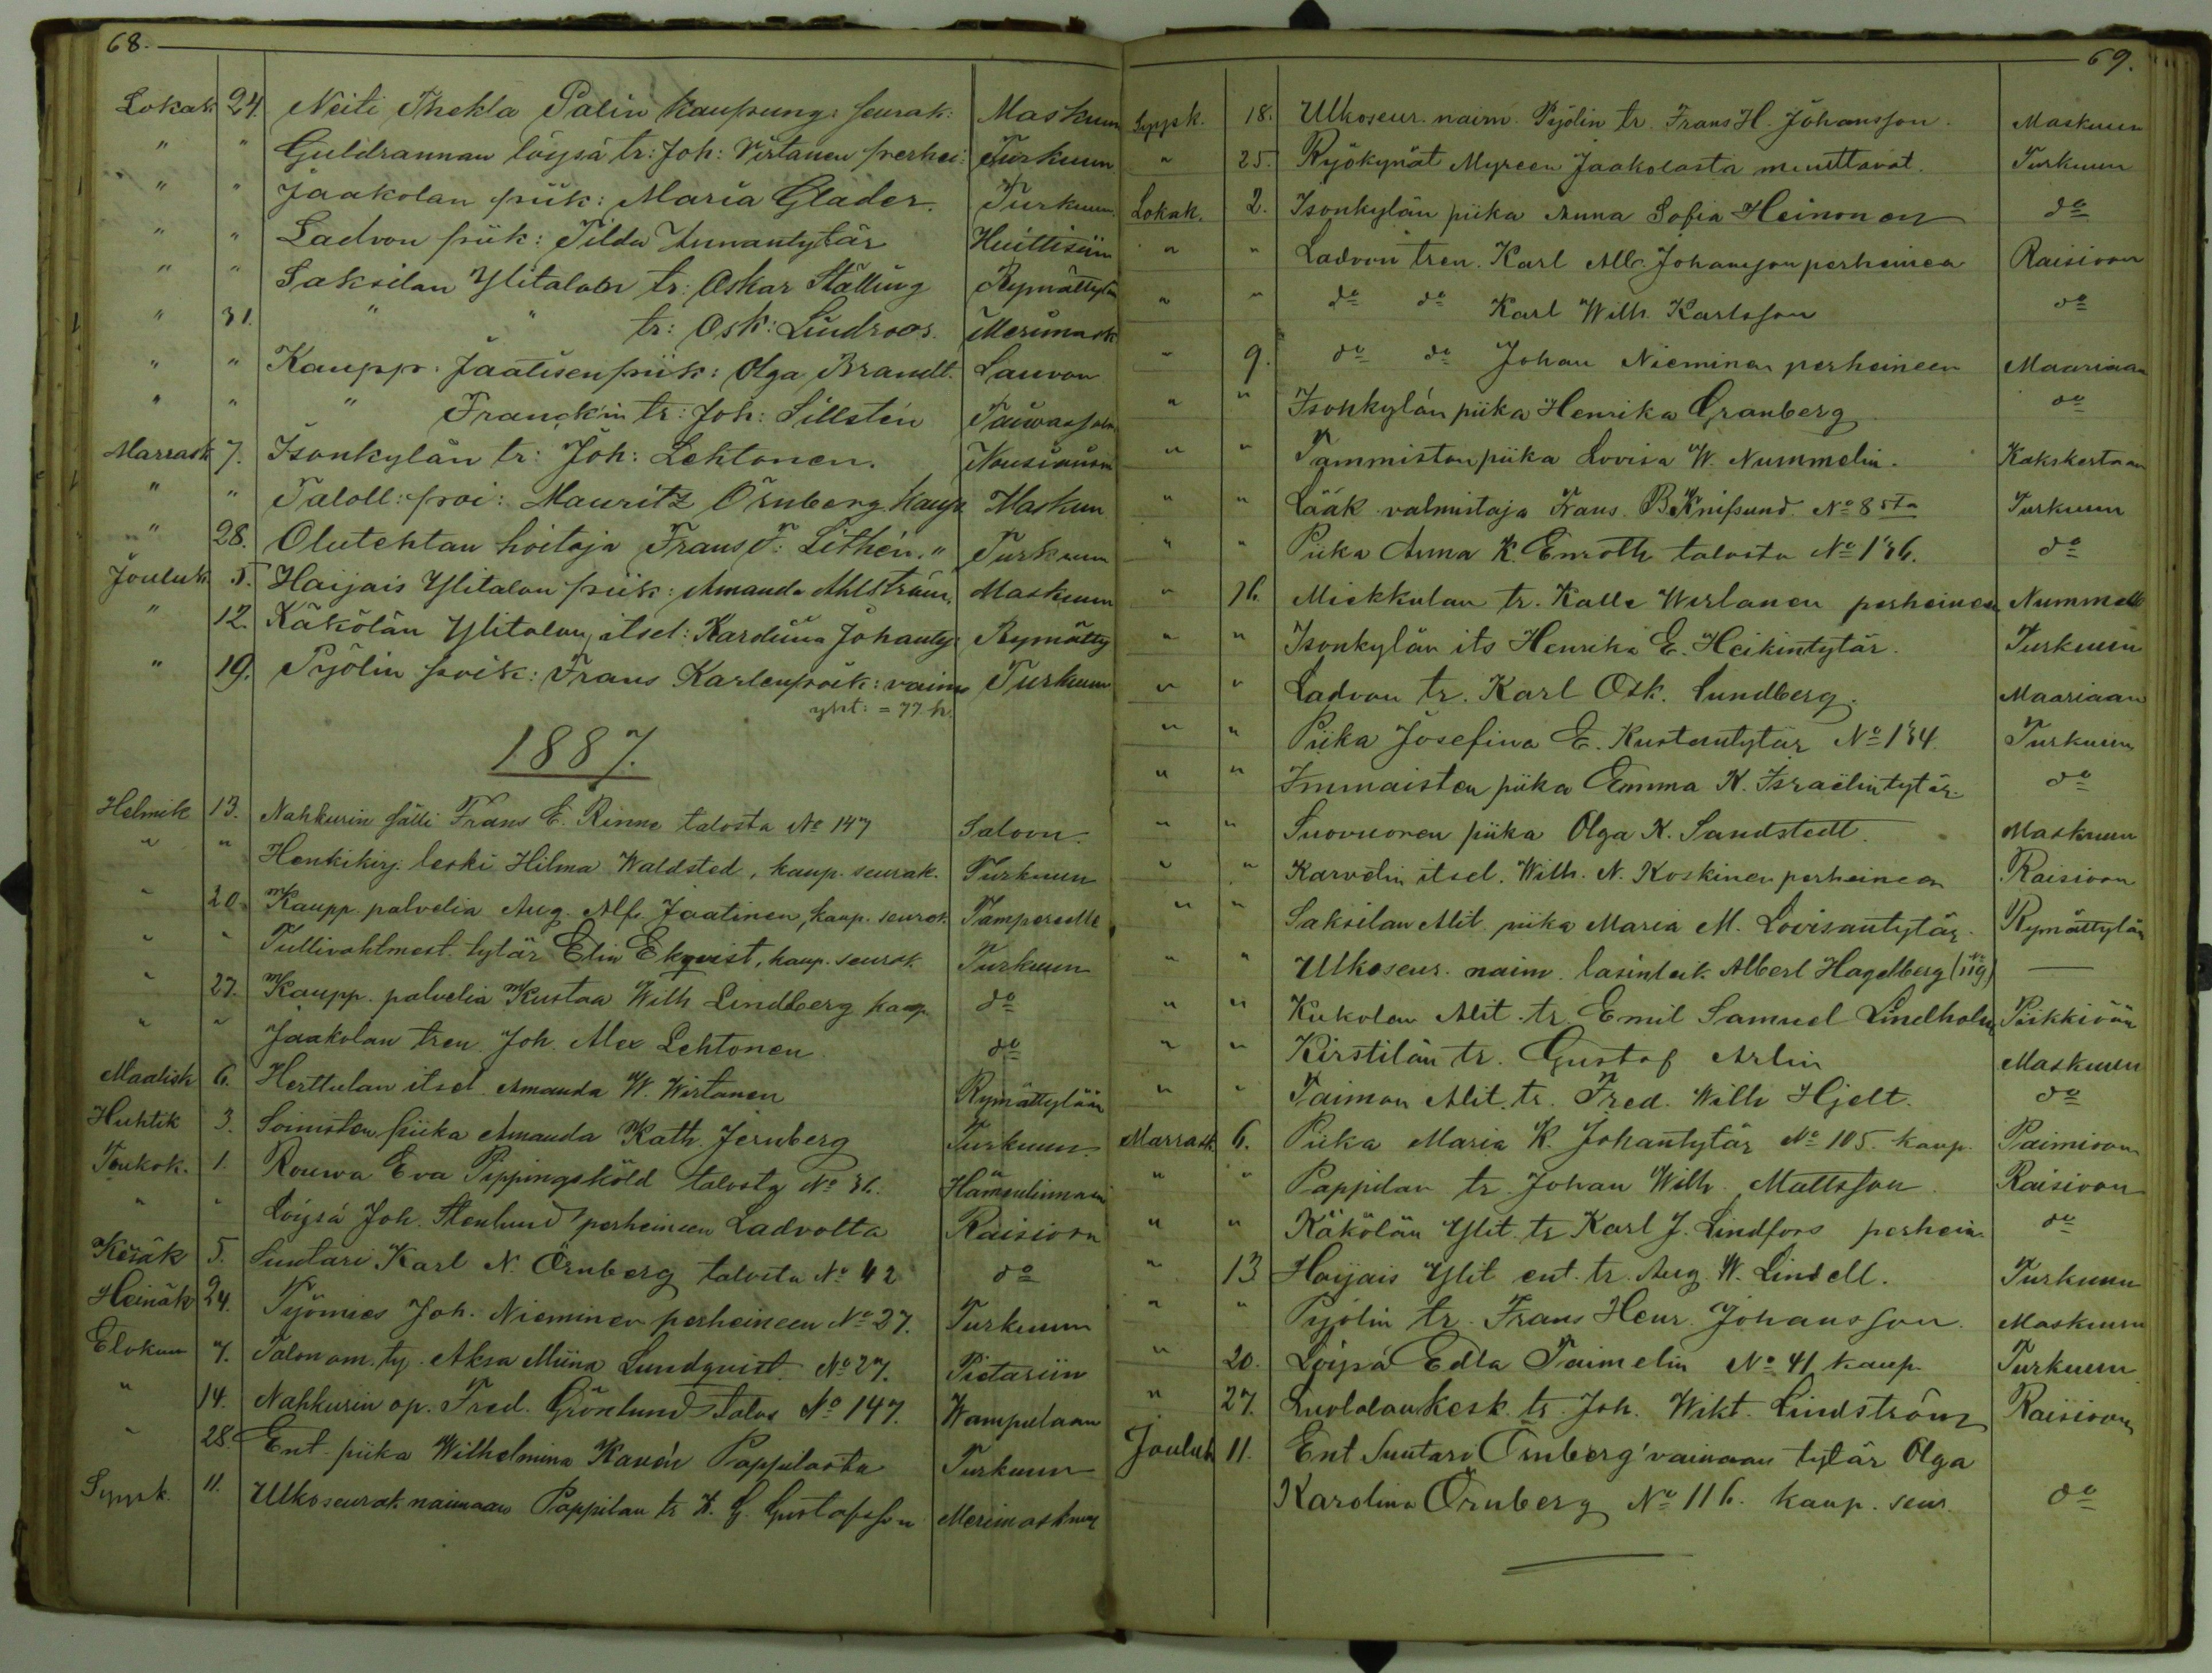 68.
Lokak 24. Neiti Thekla Palin kaupung: seurak: Maskuun
" " Guldrannan löysä tr: Joh: Virtanen perhei: Turkuun
" " Jaakolan piik: Maria Glader. Turkuun.
" " Ladvon piik: Tilda Annantytär Huittisiin
" " Saksilan Ylitalon tr: Oskar Ställing Rymättylän
" 31. " " tr: Osk: Lindroos. Merimask
" " Kaupp. Jaatisen piik: Olga Brandt. Lauvon
" " " Franck'in tr: Joh: Sillstén Taiwassalon
Marrask 7. Isonkylän tr: Joh: Lehtonen. Nousiaisiin
" " Taloll: poi: Mauritz Örnberg kaup Maskun
" 28. Olutehtan hoitaja Frans F: Lithén. " Turkuun
Jouluk 5. Haijais Ylitalon piik: Amanda Ahlström, Maskuun
" 12. Käkölän Ylitalon itsel: Karoliina Johanty: Rymätty
" 19. Pyölin poik: Frans Karlenpoik: vaimo Turkuun
yht: = 77. h.
1887.
Helmik 13. Nahkurin sälli Frans E. Rinne talosta No 147 Saloon.
" " Henkikirj. leski Hilma Waldsted, kaup. seurak. Turkuun
" 20. Kaupp. palvelia Aug. Alf. Jaatinen, kaup. seurak. Tampereelle
" " Tullivahtmest. tytär Elin Ekqvist, kaup. seurak. Turkuun
" 27. Kaupp. palvelia Kustaa Wilh Lindberg kaup. do
" " Jaakolan tren. Joh. Alex Lehtonen do
Maalisk 6. Herttulan itsel. Amanda W. Wirtanen Rymättylään
Huhtik 3. Soiniston piika Amanda Kath. Jernberg Turkuun.
Toukok. 1. Rouwa Eva Pippingsköld talosta No 36. Hämeelinnaan
" " Löysä Joh. Stenlund perheineen Ladvolta Raisioon
Kesäk 5. Suutari Karl N. Örnberg talosta No 42 do
Heinäk 24. Työmies Joh. Nieminen perheineen No 27. Turkuun
Elokuu 7. Talon om. ty. Aksa Miina Lundqvist. No 27. Pietariin
" 14. Nahkurin op. Fred. Grönlund talos No 147. Wampulaan
" 28. Ent. piika Wilhelmina Kavén Pappilasta Turkuun
Syysk. 11. Ulkoseurak. naimaan Pappilan tr K. G. Gustafsson Merimaskuun
69.
Syysk. 18. Ulkoseur. naim. Pyölin tr. Frans H. Johansson. Maskuun
" 25. Ryökynät Myreen Jaakolasta muuttavat. Turkuun
Lokak. 2. Isonkylän piika Anna Sofia Heinonen do
" " Ladvon tren. Karl Alb. Johansson perheineen Raisioon
" " do do Karl Wilh. Karlsson do
" 9. do do Johan Nieminen perheineen Maariaan
" " Isonkylän piika Henrika Granberg do
" " Tammiston piika Lovisa W. Nummelin. Kakskertaan
" " Lääk. valmistaja Frans. B. Knipsund. No 8 sta Turkuun
" " Piika Anna K. Enroth talosta No 136. do
" 16. Miekkulan tr. Kalle Werlanen perheineen Nummelle
" " Isonkylän its Henrika E. Heikintytär. Turkuun
" " Ladvon tr. Karl Osk. Sundberg. Maariaan
" " Piika Josefina E. Kustantytär No 134. Turkuun
" " Immaisten piika Emma K. Israëlintytär. do
" " Suovuoren piika Olga K. Sandstedt. Maskuun
" " Karvelin itsel. Wilh. N. Koskinen perheineen Raisioon
" " Saksilan Alit. piika Maria M. Lovisantytär. Rymättylän
" " Ulkoseur. naim. lasinleik. Albert Hagelberg (No 119) —
" " Kukolan Alit. tr. Emil Samuel Lindholm Piikkiöön
" " Kirstilän tr. Gustaf Arlin Maskuun
" " Taimon Alit. tr. Fred. Wilh Hjelt. do
Marrask 6. Piika Maria K. Johantytär No 105. kaup. Paimioon
" " Pappilan tr. Johan Wilh. Mattsson Raisioon
" " Käkölän Ylit. tr Karl J. Lindfors perhein. do
" 13 Haijais Ylit ent. tr. Aug. W. Lindell. Turkuun
" " Pyölin tr. Frans Henr. Johansson. Maskuun
" 20. Löysä Edla Taimelin No 41 kaup. Turkuun.
" 27. Luolalan kesk. tr. Joh. Wikt. Lindström Raisioon
Jouluk 11. Ent Suutari Örnberg'vainaan tytär Olga
Karolina Örnberg No 116. kaup. seur. do